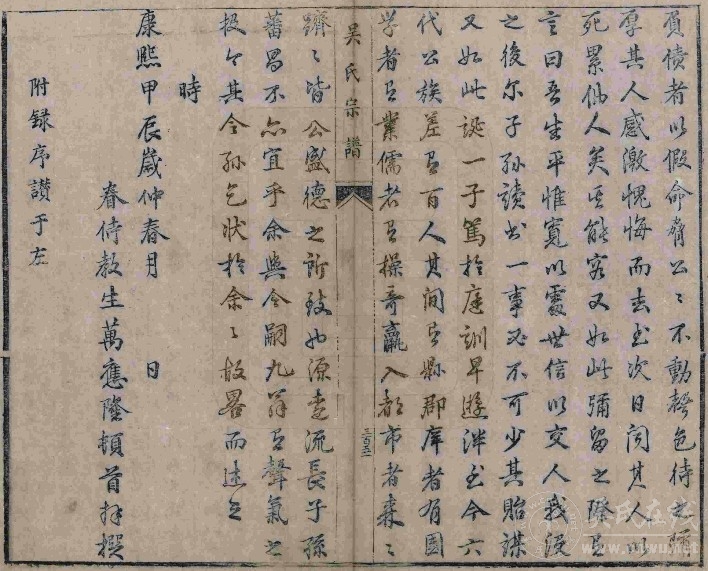 負債者以假命脅公〻不動聲色待之彌
厚其人感激愧悔而去至次日聞其人以
死累仙人矣其能容又如此彌留之際且
言曰吾生平惟寬以處世信以交人我沒
之後尔子孫讀書一事又不可少其貽謀
又如此誕一子篤於庭訓早遊泮至今六
代公族差百人其間縣郡庠者有國
学者業儒者操奇贏入都市者森〻
吳氏宗譜
三百三
躋〻皆公盛德之所致也源遠流長子孫
蕃昌不亦宜乎余與令嗣九翁聲氣之
投令其令孫乞狀於余〻故畧而述之
時
康熙甲辰歲仲春月 日
眷侍教生萬應隆頓首拜撰
附録序讚于左
吴氏在线
www.uiwu.net